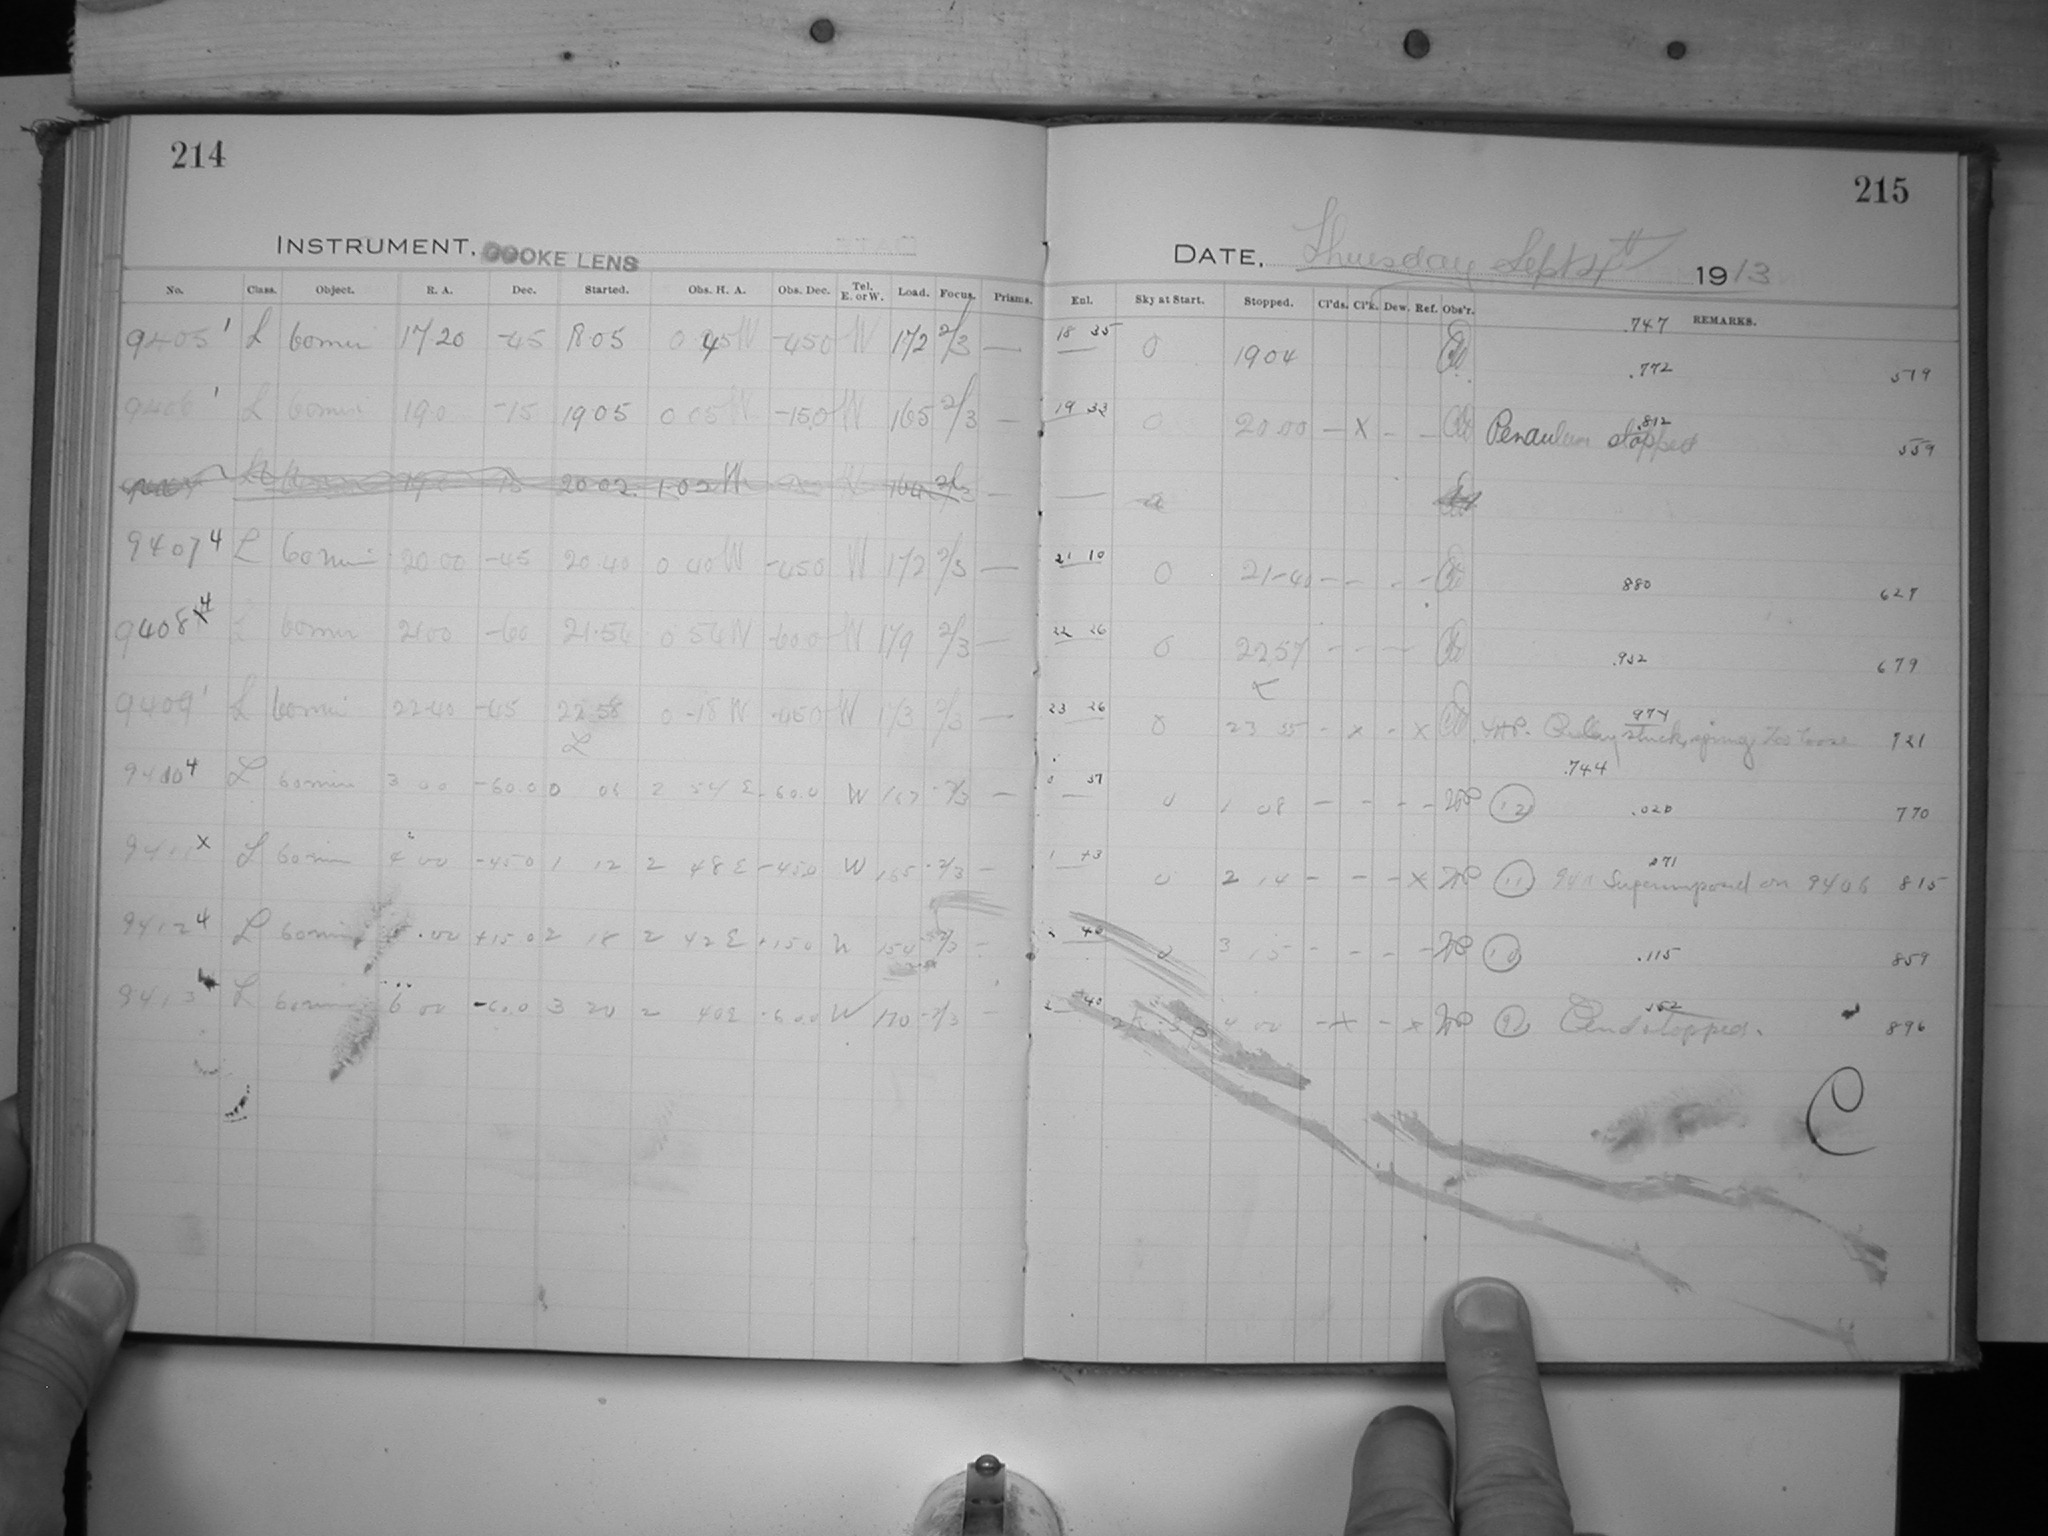 214
INSTRUMENT, COOKE LENS
No. Class. Object. R. A. Dec. Started. Obs. H. A. Obs. Dec. Tel. E. or W. Load. Focus. Prisms.
9405 1 L 60 min 17 20 -45 18 05 0 45 W -45 0 W 172 2/3 —
9406 1 L 60 min 19 0 -15 19 05 0 05 W -15.0 W 165 2/3 —
20 02 1 02 W —
9407 4 L 60 min 20 00 -45 20 40 0 40 W -45 0 W 172 2/3 —
9408 4 L 60 min 21 00 -60 21.54 0 54 W -60.0 W 179 2/3 —
9409 1 L 60 min 22 40 -45 22 58 0 -18 W -45 0 W 173 2/3 —
L
9410 4 L 60 min 3 00 -60.0 0 06 2 54 E -60.0 W 167 -2/3 —
9411 x L 60 min 4 00 -45 0 1 12 2 48 E -45.0 W 165 -2/3 —
9412 4 L 60 min 5.00 +15 0 2 18 2 42 E +15 0 W 150 2/3 -
9413 L 60 min 6 00 -60.0 3 20 2 40 E -60.0 W 170 -2/3 —
215
DATE, Thursday Sept 4th 1913
Enl. Sky at Start. Stopped. Cl'ds. Cl'k. Dew. Ref. Obs'r. REMARKS.
.747
18 35 0 19 04 .772 519
19 33 0 20 00 — X - - Pendulum stopped .812 559
21 10 0 21-40 - - - - 880 627
22 26 0 22 57 - - - .932 679
L
23 26 0 23 55 - x - x Relay stuck, spring too loose 974 721
.744
0 37 0 1 08 - - - - 12 .020 770
1 43 0 2 14 - - - X 11 9411 Superimposed on 9406 071 815
2 46 0 3 15 - - - - 10 .115 859
4 00 - x - x 9 Pend stopped. 896
C